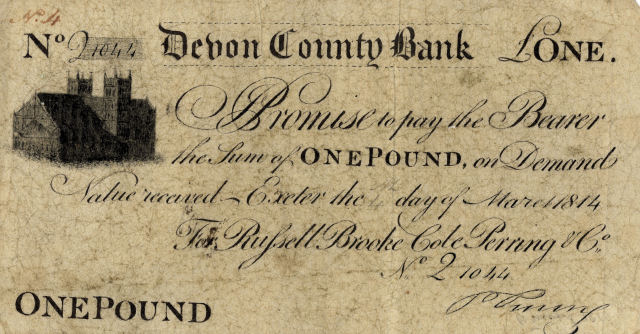 No. 4
No. 2 1044 Devon County Bank £ONE.
I Promise to pay the Bearer
the Sum of ONE POUND, on Demand
Value received Exeter the day of March 1814
For Russell Brooke Cole Perring & Co.
No. 2 1044
ONE POUND